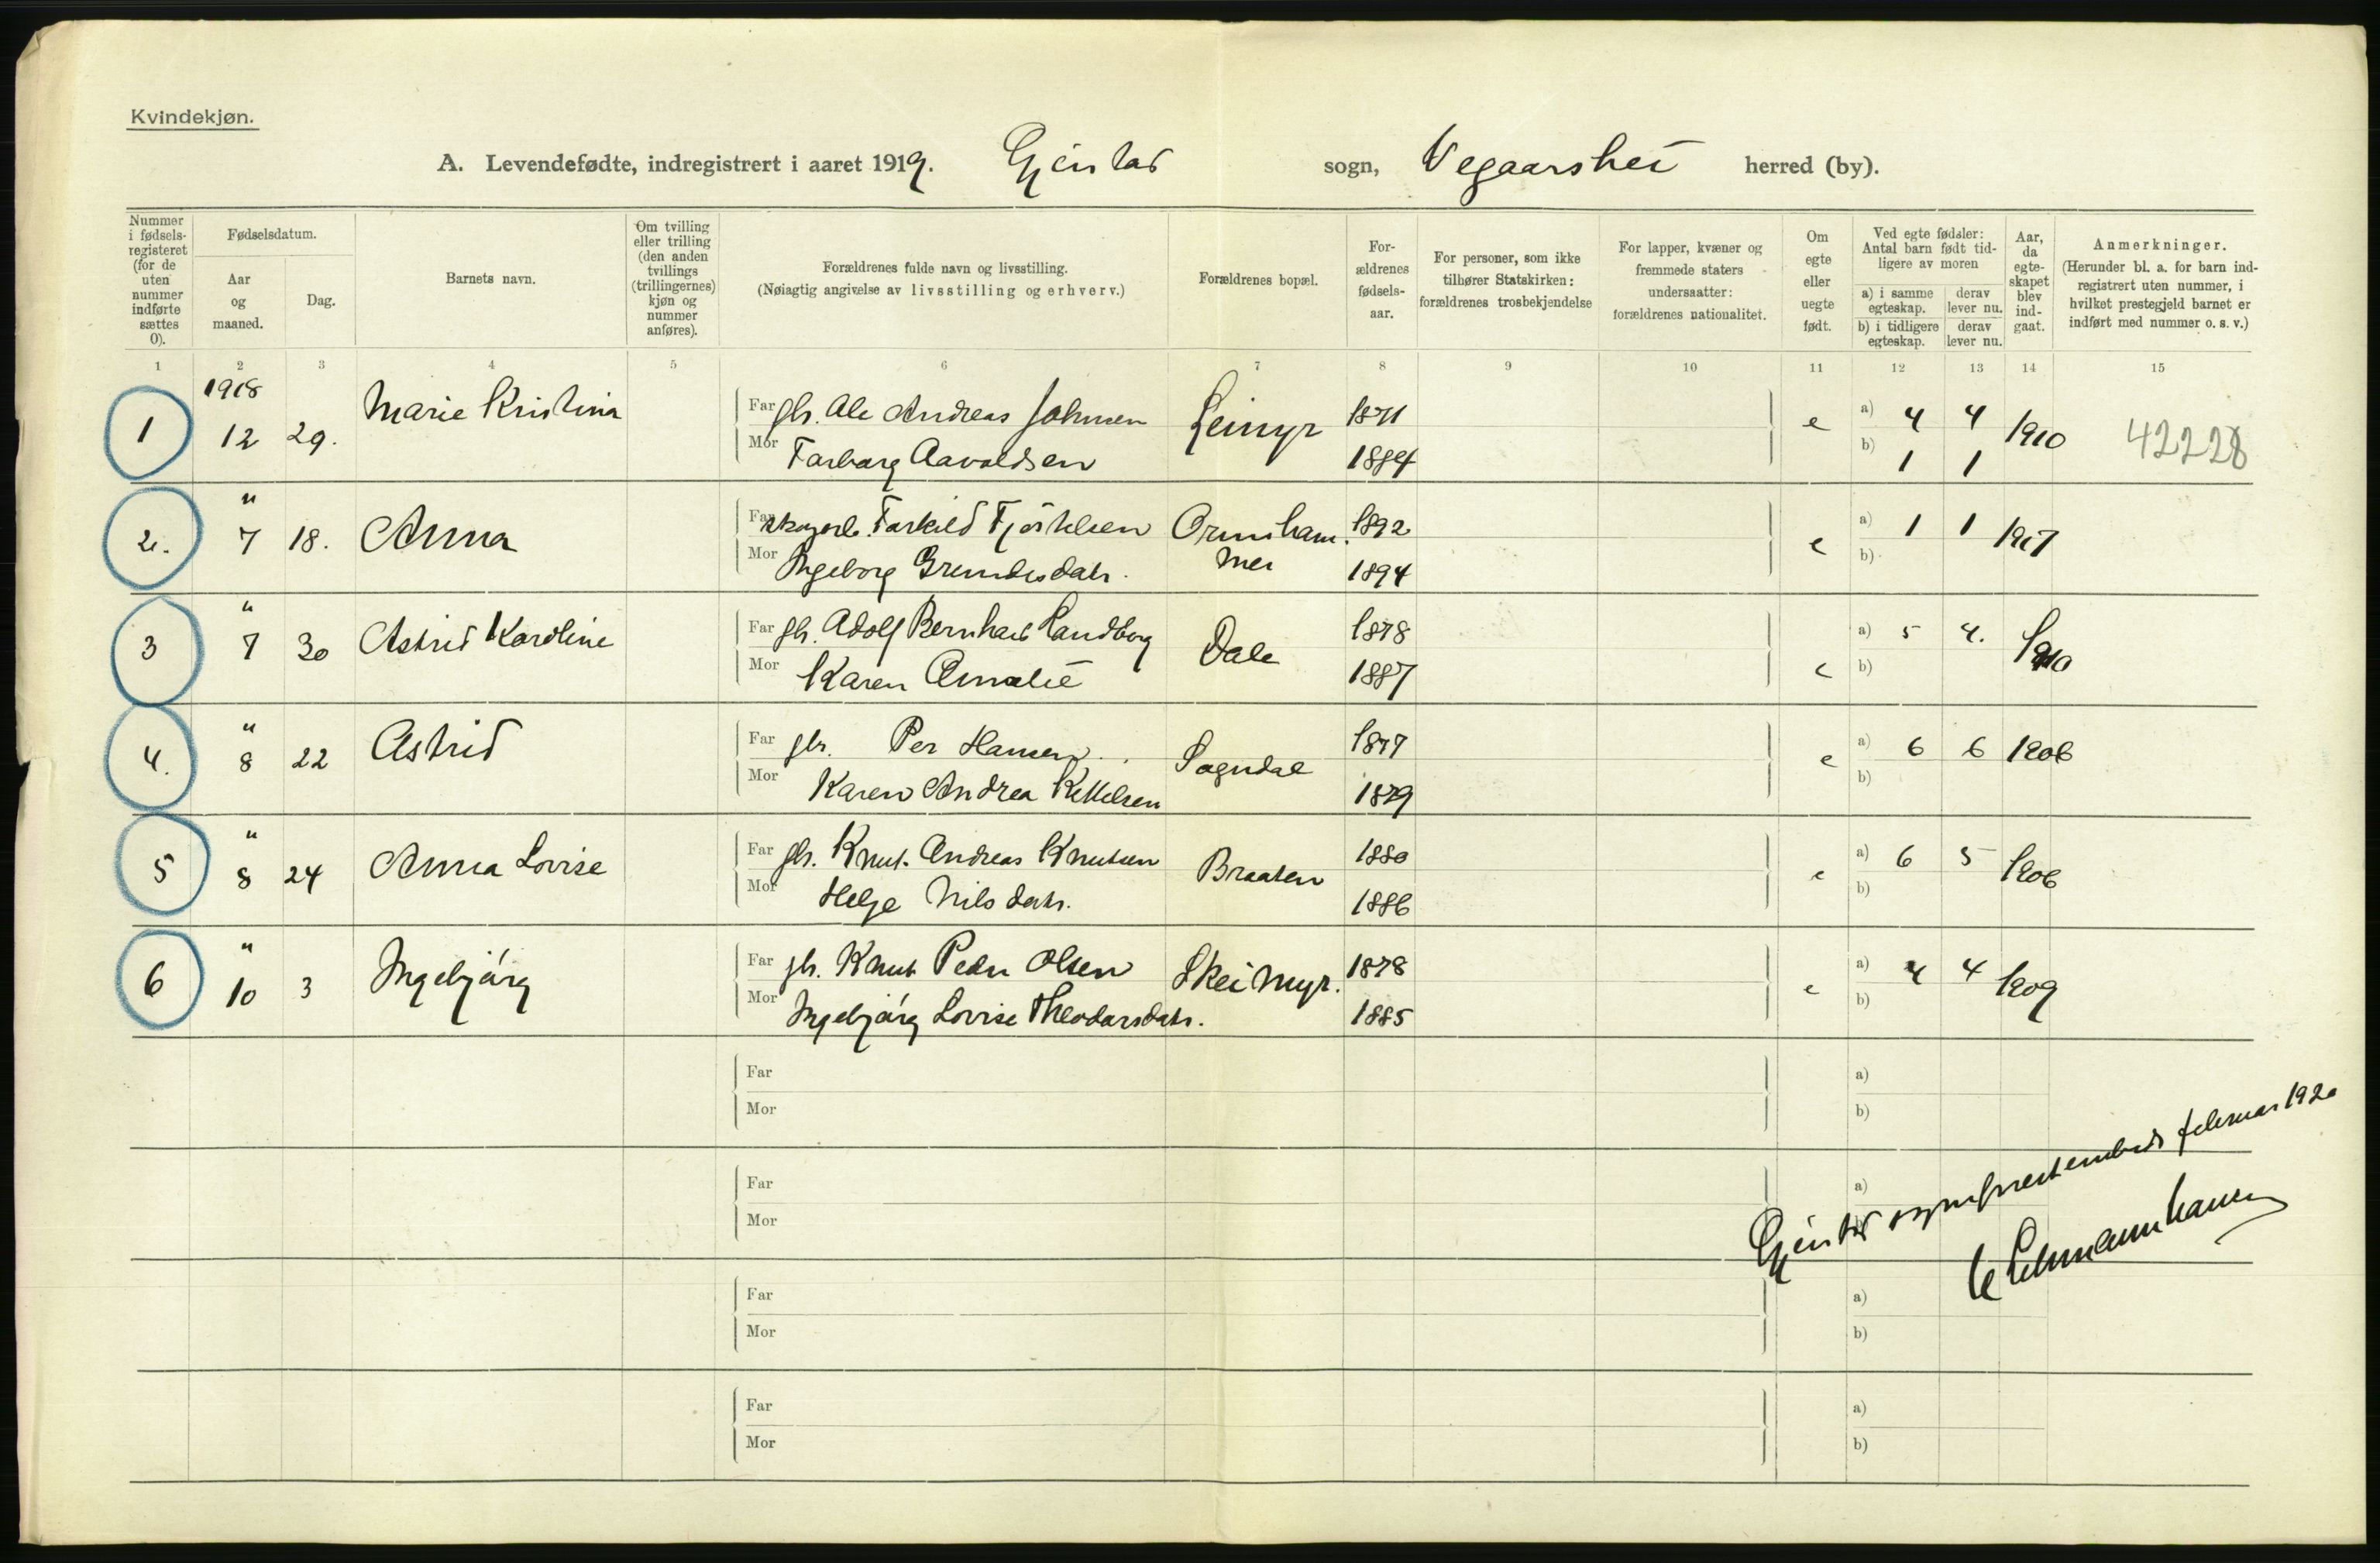 Kvindekjøn.
A. Levendefødte, indregistrert i aaret 1919. Gjerstad sogn, Vegaarshei herred (by).
Nummer i fødselsregisteret (for de uten nummer indførte sættes 0).
Fødselsdatum.
Aar og maaned.
Dag.
Barnets navn.
Om tvilling eller trilling (den anden tvillings (trillingernes) kjøn og nummer anføres).
Forældrenes fulde navn og livsstilling.
(Nøiagtig angivelse av livsstilling og erhverv.)
Forældrenes bopæl.
Forældrenes fødselsaar.
For personer, som ikke tilhører Statskirken: forældrenes trosbekjendelse
For lapper, kvæner og fremmede staters undersaatter: forældrenes nationalitet.
Om egte eller uegte født.
Ved egte fødsler: Antal barn født tidligere av moren
a) i samme egteskap.
derav lever nu.
b) i tidligere egteskap.
derav lever nu.
Aar, da egteskapet blev indgaat.
Anmerkninger.
(Herunder bl. a. for barn indregistrert uten nummer, i hvilket prestegjeld barnet er indført med nummer o. s. v.)
1 2 3 4 5 6 7 8 9 10 11 12 13 14 15
1918
1 12 29. Marie Kristina Far gbr. Ole Andreas Johnsen 1871 e a) 4 4 1910 42228
Mor Torborg Aavoldsen 1884 b) 1 1
2. " 7 18. Anna Far Torkild 1892 e a) 1 1 1917
Mor Ingeborg 1894 b)
3 " 7 30 Astrid Karoline Far gbr. Adolf Bernhard Sandberg Dale 1878 e a) 5 4. 1910
Mor Karen Amalie 1887 b)
4. " 8 22 Astrid Far gbr. Per Hansen Sogndal 1877 e a) 6 6 1906
Mor Karen Andrea Kittelsen 1879 b)
5 " 8 24 Anna Lovise Far gbr. Knut Andreas Knutsen Braaten 1880 e a) 6 5 1906
Mor Helge Nilsdatr. 1886 b)
6 " 10 3 Ingebjørg Far gbr. Knut Peder Olsen Skeimyr. 1878 e a) 4 4 1909
Mor Ingebjørg Lovise Theodorsdatr. 1885 b)
Far a)
Mor b)
Far a)
Mor b)
Far a)
Mor b)
Far a)
Mor b)
Gjerstad sogneprestembede februar 1920